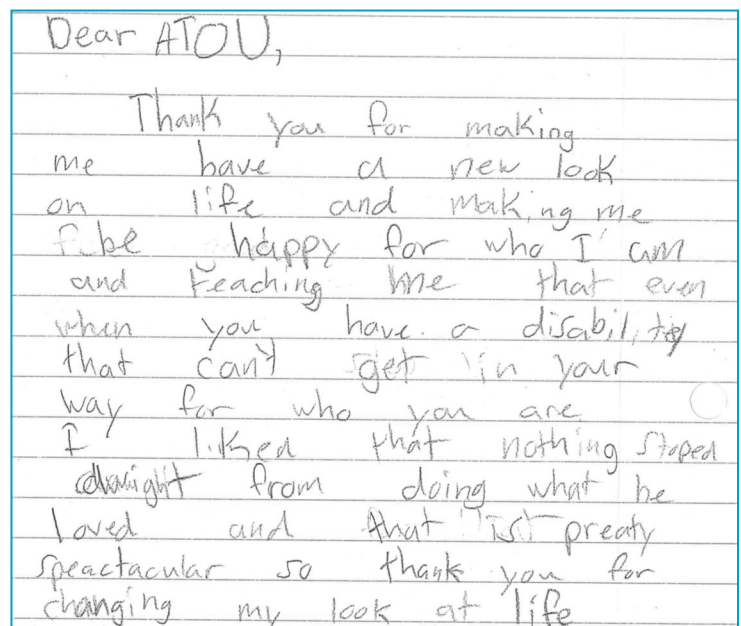 Dear ATOU,
Thank you for making
me have a new look
on life and making me
be happy for who I am
and teaching me that even
when you have a disability
that can't get in your
way for who you are
I liked that nothing stoped
dwight from doing what he
loved and that is preaty
speactacular so thank you for
changing my look at life